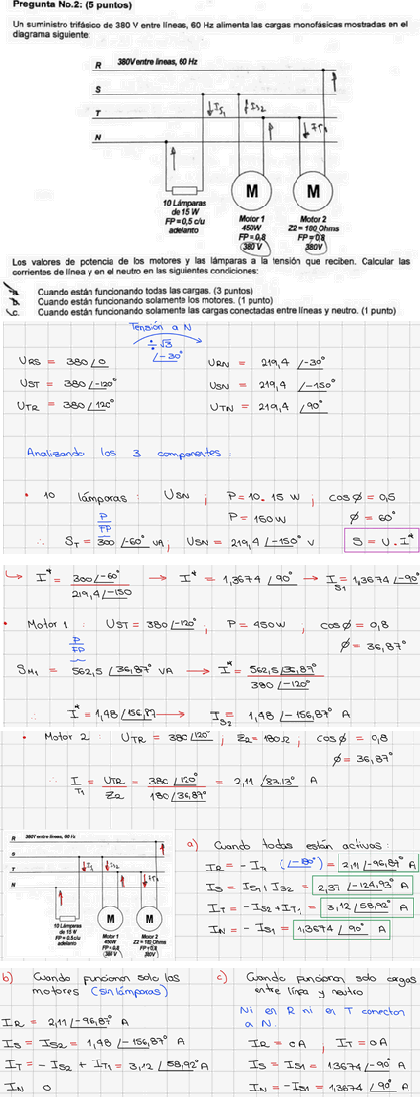 Pregunta No.2: (5 puntos)
Un suministro trifásico de 380 V entre líneas, 60 Hz alimenta las cargas monofásicas mostradas en el
diagrama siguiente
R 380V entre lineas, 60 Hz
S
T
N
I_S1 I_S2 I_T1
M M
10 Lámparas
de 15 W
FP=0,5 c/u
adelanto
Motor 1
450W
FP=0,8
380 V
Motor 2
Z2= 180 Ohms
FP=0,8
380V
Los valores de potencia de los motores y las lámparas a la tensión que reciben. Calcular las
corrientes de línea y en el neutro en las siguientes condiciones:
a. Cuando están funcionando todas las cargas. (3 puntos)
b. Cuando están funcionando solamente los motores. (1 punto)
c. Cuando están funcionando solamente las cargas conectadas entre líneas y neutro. (1 punto)
Tensión a N
÷ √3
∠-30°
U_RS = 380 ∠0 U_RN = 219,4 ∠-30°
U_ST = 380 ∠-120° U_SN = 219,4 ∠-150°
U_TR = 380 ∠120° U_TN = 219,4 ∠90°
Analizando los 3 componentes:
• 10 lámparas: U_SN ; P = 10 . 15 W ; cos ø = 0,5
P = 150 W ø = 60°
P/FP
∴ S_T = 300 ∠-60° VA ; U_SN = 219,4 ∠-150° V S = U . I*
↳ I* = 300∠-60° / 219,4 ∠-150 → I* = 1,3674 ∠90° → I_S1 = 1,3674 ∠-90°
• Motor 1 : U_ST = 380 ∠-120° ; P = 450W ; cos ø = 0,8
ø = 36,87°
P/FP
S_M1 = 562,5 ∠36,87° VA → I* = 562,5 ∠36,87° / 380 ∠-120°
∴ I* = 1,48 ∠156,87 → I_S2 = 1,48 ∠-156,87° A
• Motor 2 : U_TR = 380 ∠120° ; Z2 = 180Ω ; cos ø = 0,8
ø = 36,87°
∴ I_T1 = U_TR / Z2 = 380 ∠120° / 180 ∠36,87° = 2,11 ∠83,13° A
R 380V entre lineas, 60 Hz
S
T
N
I_S1 I_S2 I_T1
M M
10 Lámparas
de 15 W
FP=0,5 c/u
adelanto
Motor 1
450W
FP=0,8
380 V
Motor 2
Z2= 180 Ohms
FP=0,8
380V
a) Cuando todas están activas:
I_R = - I_T1 (∠-180°) = 2,11 ∠-96,87° A
I_S = I_S1 + I_S2 = 2,37 ∠-124,93° A
I_T = -I_S2 + I_T1 = 3,12 ∠58,92° A
I_N = - I_S1 = 1,3674 ∠90° A
b) Cuando funcionan solo los
motores (sin lámparas)
I_R = 2,11 ∠-96,87° A
I_S = I_S2 = 1,48 ∠-156,87° A
I_T = - I_S2 + I_T1 = 3,12 ∠58,92° A
I_N 0
c) Cuando funcionan solo cargas
entre línea y neutro
Ni en R ni en T conectan
a N.
I_R = 0 A ; I_T = 0 A
I_S = I_S1 = 1,3674 ∠-90° A
I_N = -I_S1 = 1,3674 ∠90° A